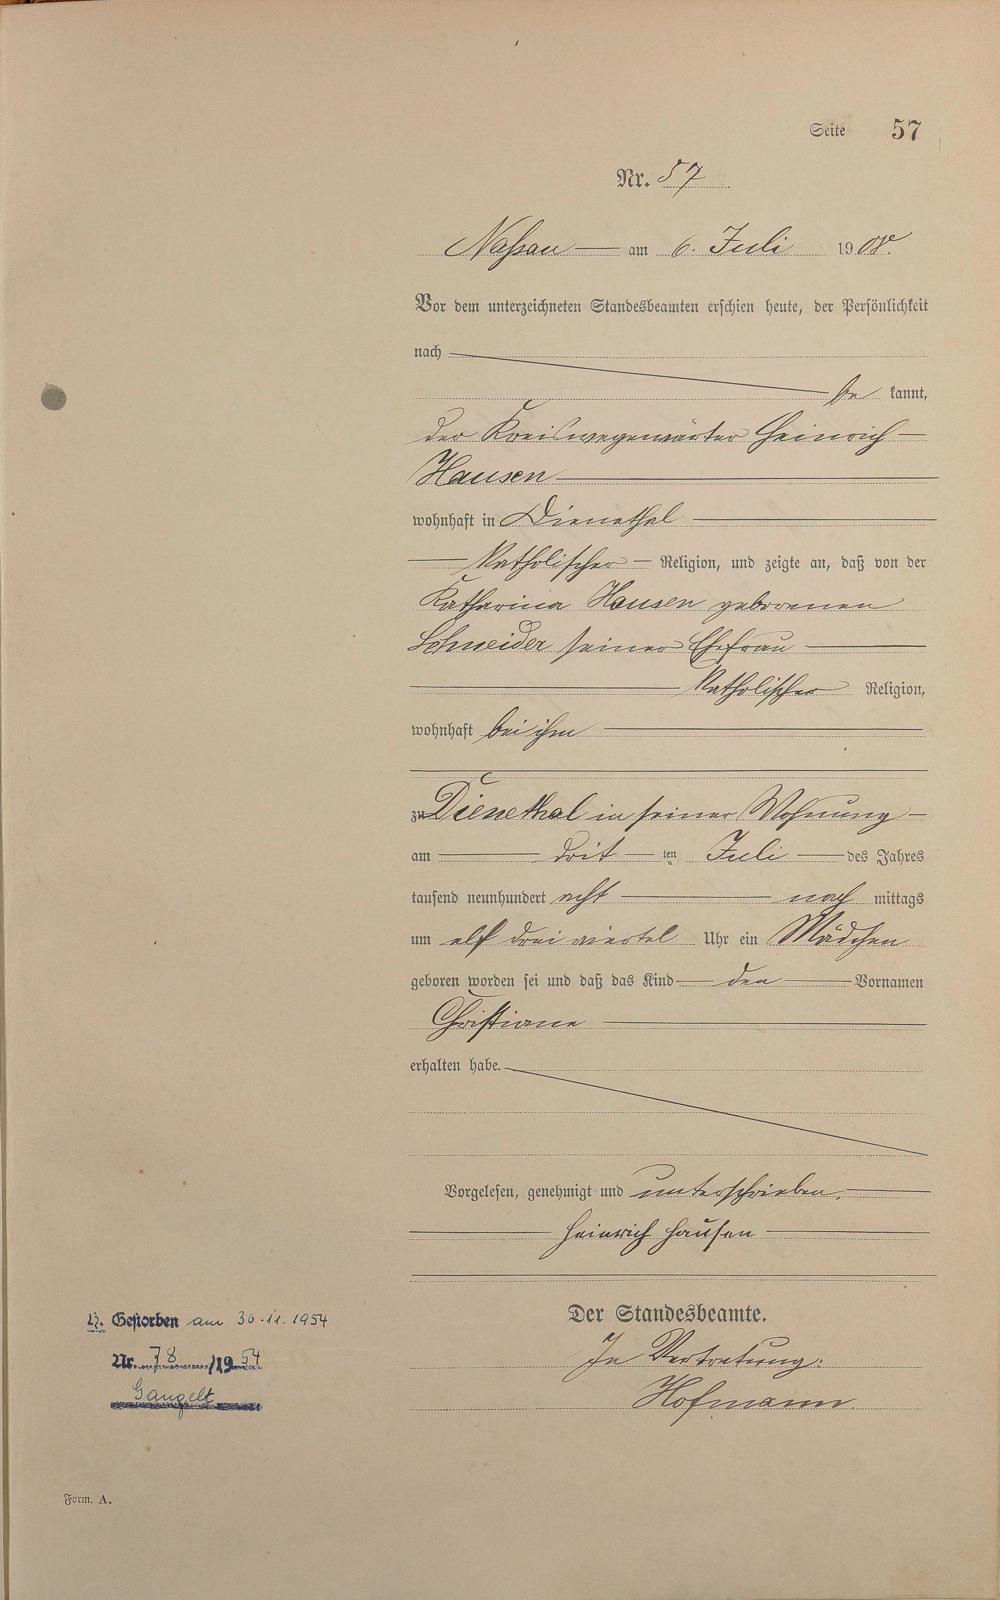 Seite 57
Nr. 57
Nassau am 6. Juli 1908.
Vor dem unterzeichneten Standesbeamten erschien heute, der Persönlichkeit
nach
be kannt,
der Kreiswegewärter Heinrich
Hausen
wohnhaft in Dienethal
katholischer Religion, und zeigte an, daß von der
Katharina Hausen geborenen
Schneider seiner Ehefrau
katholischer Religion,
wohnhaft bei ihm
zu Dienethal in seiner Wohnung
am dritten Juli des Jahres
tausend neunhundert acht nach mittags
um elf drei viertel Uhr ein Mädchen
geboren worden sei und daß das Kind den Vornamen
Christiane
erhalten habe.
Vorgelesen, genehmigt und unterschrieben.
Heinrich Hausen
Der Standesbeamte.
In Vertretung:
Hofmann.
Gestorben am 30.11.1954
Nr. 78/1954
Gangelt
Form. A.